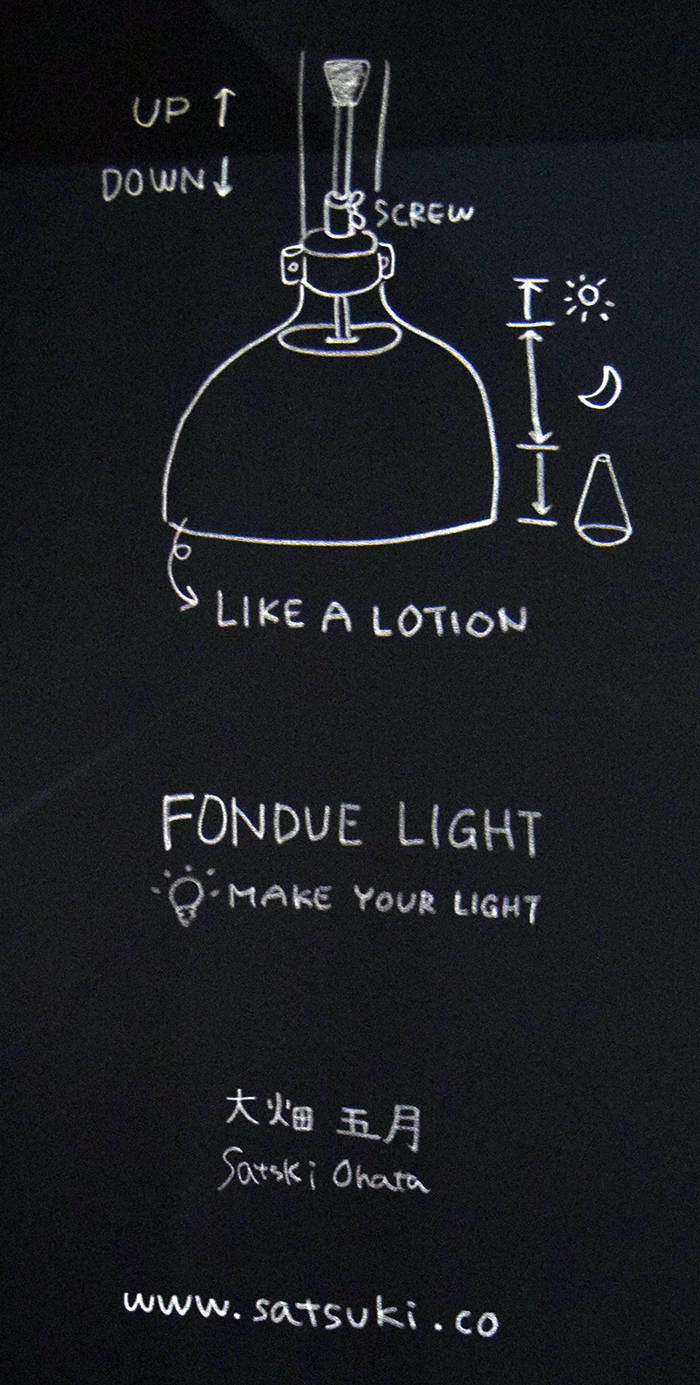 UP ↑
DOWN ↓
SCREW
LIKE A LOTION
FONDUE LIGHT
MAKE YOUR LIGHT
大畑 五月
Satski Ohata
www.satsuki.co